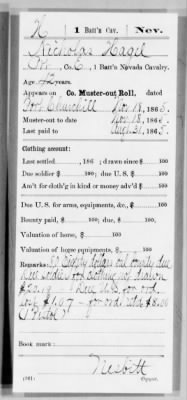 H | 1 Batt'n Cav. | Nev.
Nicholas Hagel
Pvt., Co. E, 1 Batt'n Nevada Cavalry.
Age 42 years.
Appears on Co. Muster-out Roll, dated
Fort Churchill Nov 18, 1865.
Muster-out to date Nov 18, 1865.
Last paid to Aug 31, 1865.
Clothing account:
Last settled, 186 ; drawn since $ 100
Due soldier $ 100; due U. S. $ 100
Am't for cloth'g in kind or money adv'd $ 100
Due U. S. for arms, equipments, &c., $ 100
Bounty paid, $ 100; due, $ 100
Valuation of horse, $ 100
Valuation of horse equipments, $ 100
Remarks: 80 Eighty dollars bounty due
soldier for clothing not drawn
U.S. for ord
lost
(1 Pistol)
Book mark:
Nesbitt
(361) Copyist.